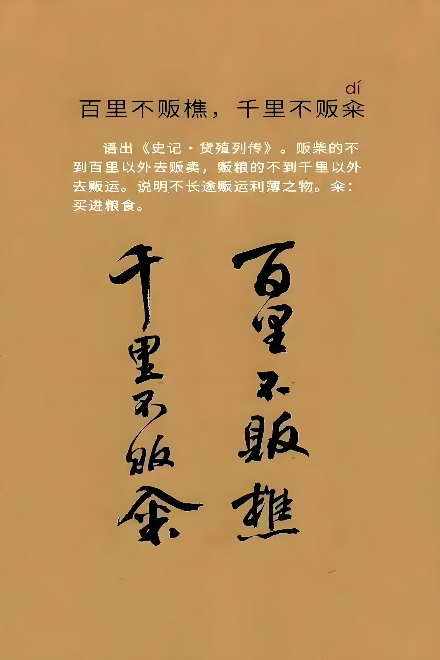 dí
百里不贩樵，千里不贩籴
语出《史记·货殖列传》。贩柴的不
到百里以外去贩卖，贩粮的不到千里以外
去贩运。说明不长途贩运利薄之物。籴：
买进粮食。
百里不販樵
千里不販籴